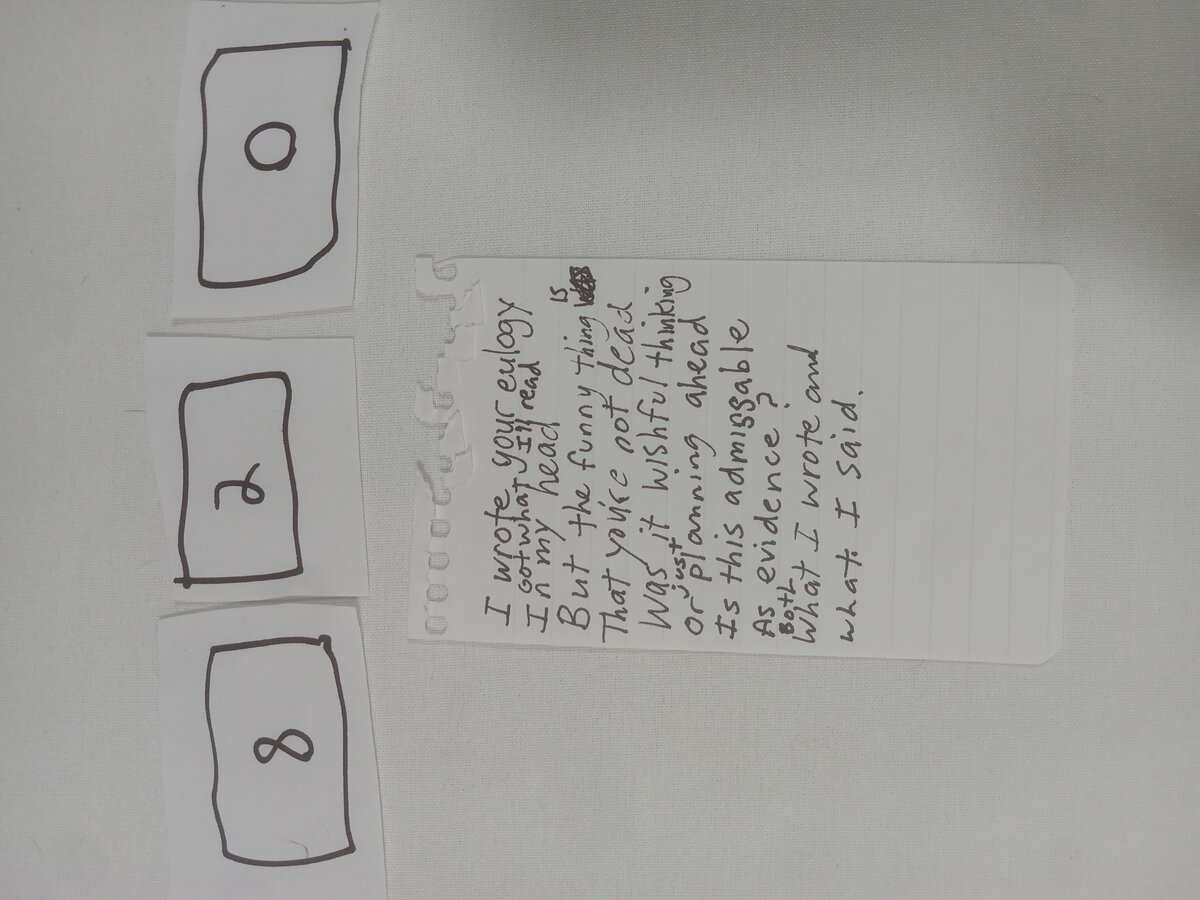 8 2 0
I wrote your eulogy
Got what I'll read
In my head
But the funny thing is
That you're not dead
Was it wishful thinking
Or just planning ahead
Is this admissable
As evidence?
Both
What I wrote and
what I said.